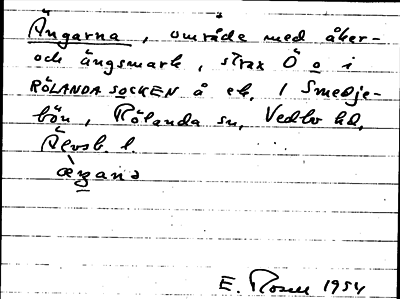 Ängarna, område med åker-
och ängsmark, strax Ö o i
RÖLANDA SOCKEN å ek. 1 Smedje-
bön, Rölanda sn, Vedbo hd,
Älvsb. l.
E. Rosell 1954